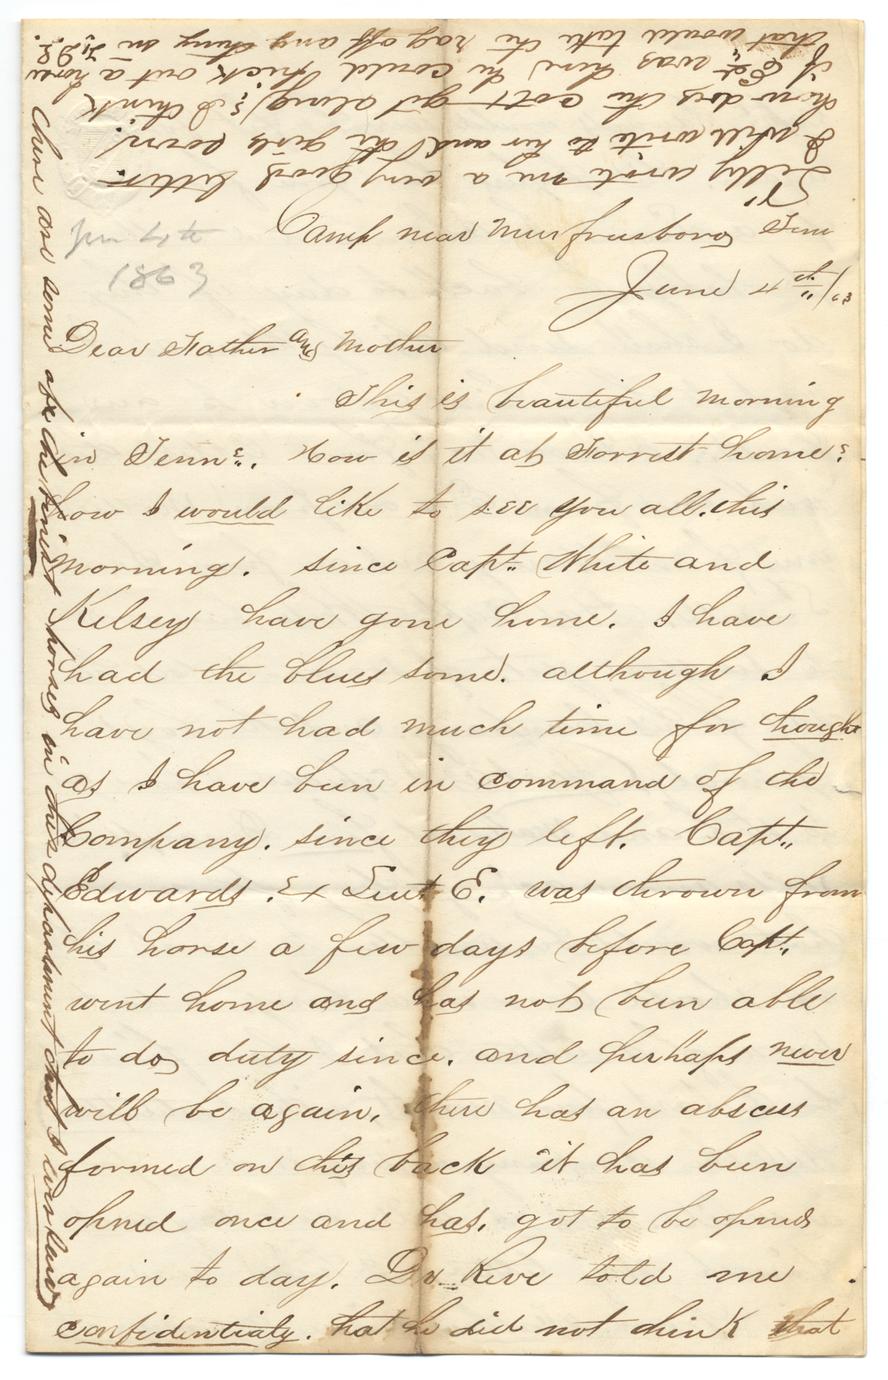 Camp near Murfreesboro Tenn
June 4th /63
Jun 4th
1863
Dear Father and Mother
This is beautiful morning
in Tenn. How is it at Forrest home &
how I would like to see you all. this
morning. since Capt. White and
Kelsey have gone home. I have
had the blues some. although I
have not had much time for thought
as I have been in command of the
Company. since they left. Capt.
Edwards. Ex Lieut E. was thrown from
his horse a few days before Capt.
went home and has not been able
to do duty since. and perhaps never
will be again. there has an abscess
formed on his back it has been
opned once and has. got to be opned
again to day. Dr. Reve told me
confidentialy. that he did not think that
Tilly wrote me a very good letter.
I will write to her and the girls soon.
how dos the colt get along, & I think
if Ed. was here he could pick out a horse
that would take the rag off any thing in
there are some of the finest horses in this department that I ever saw